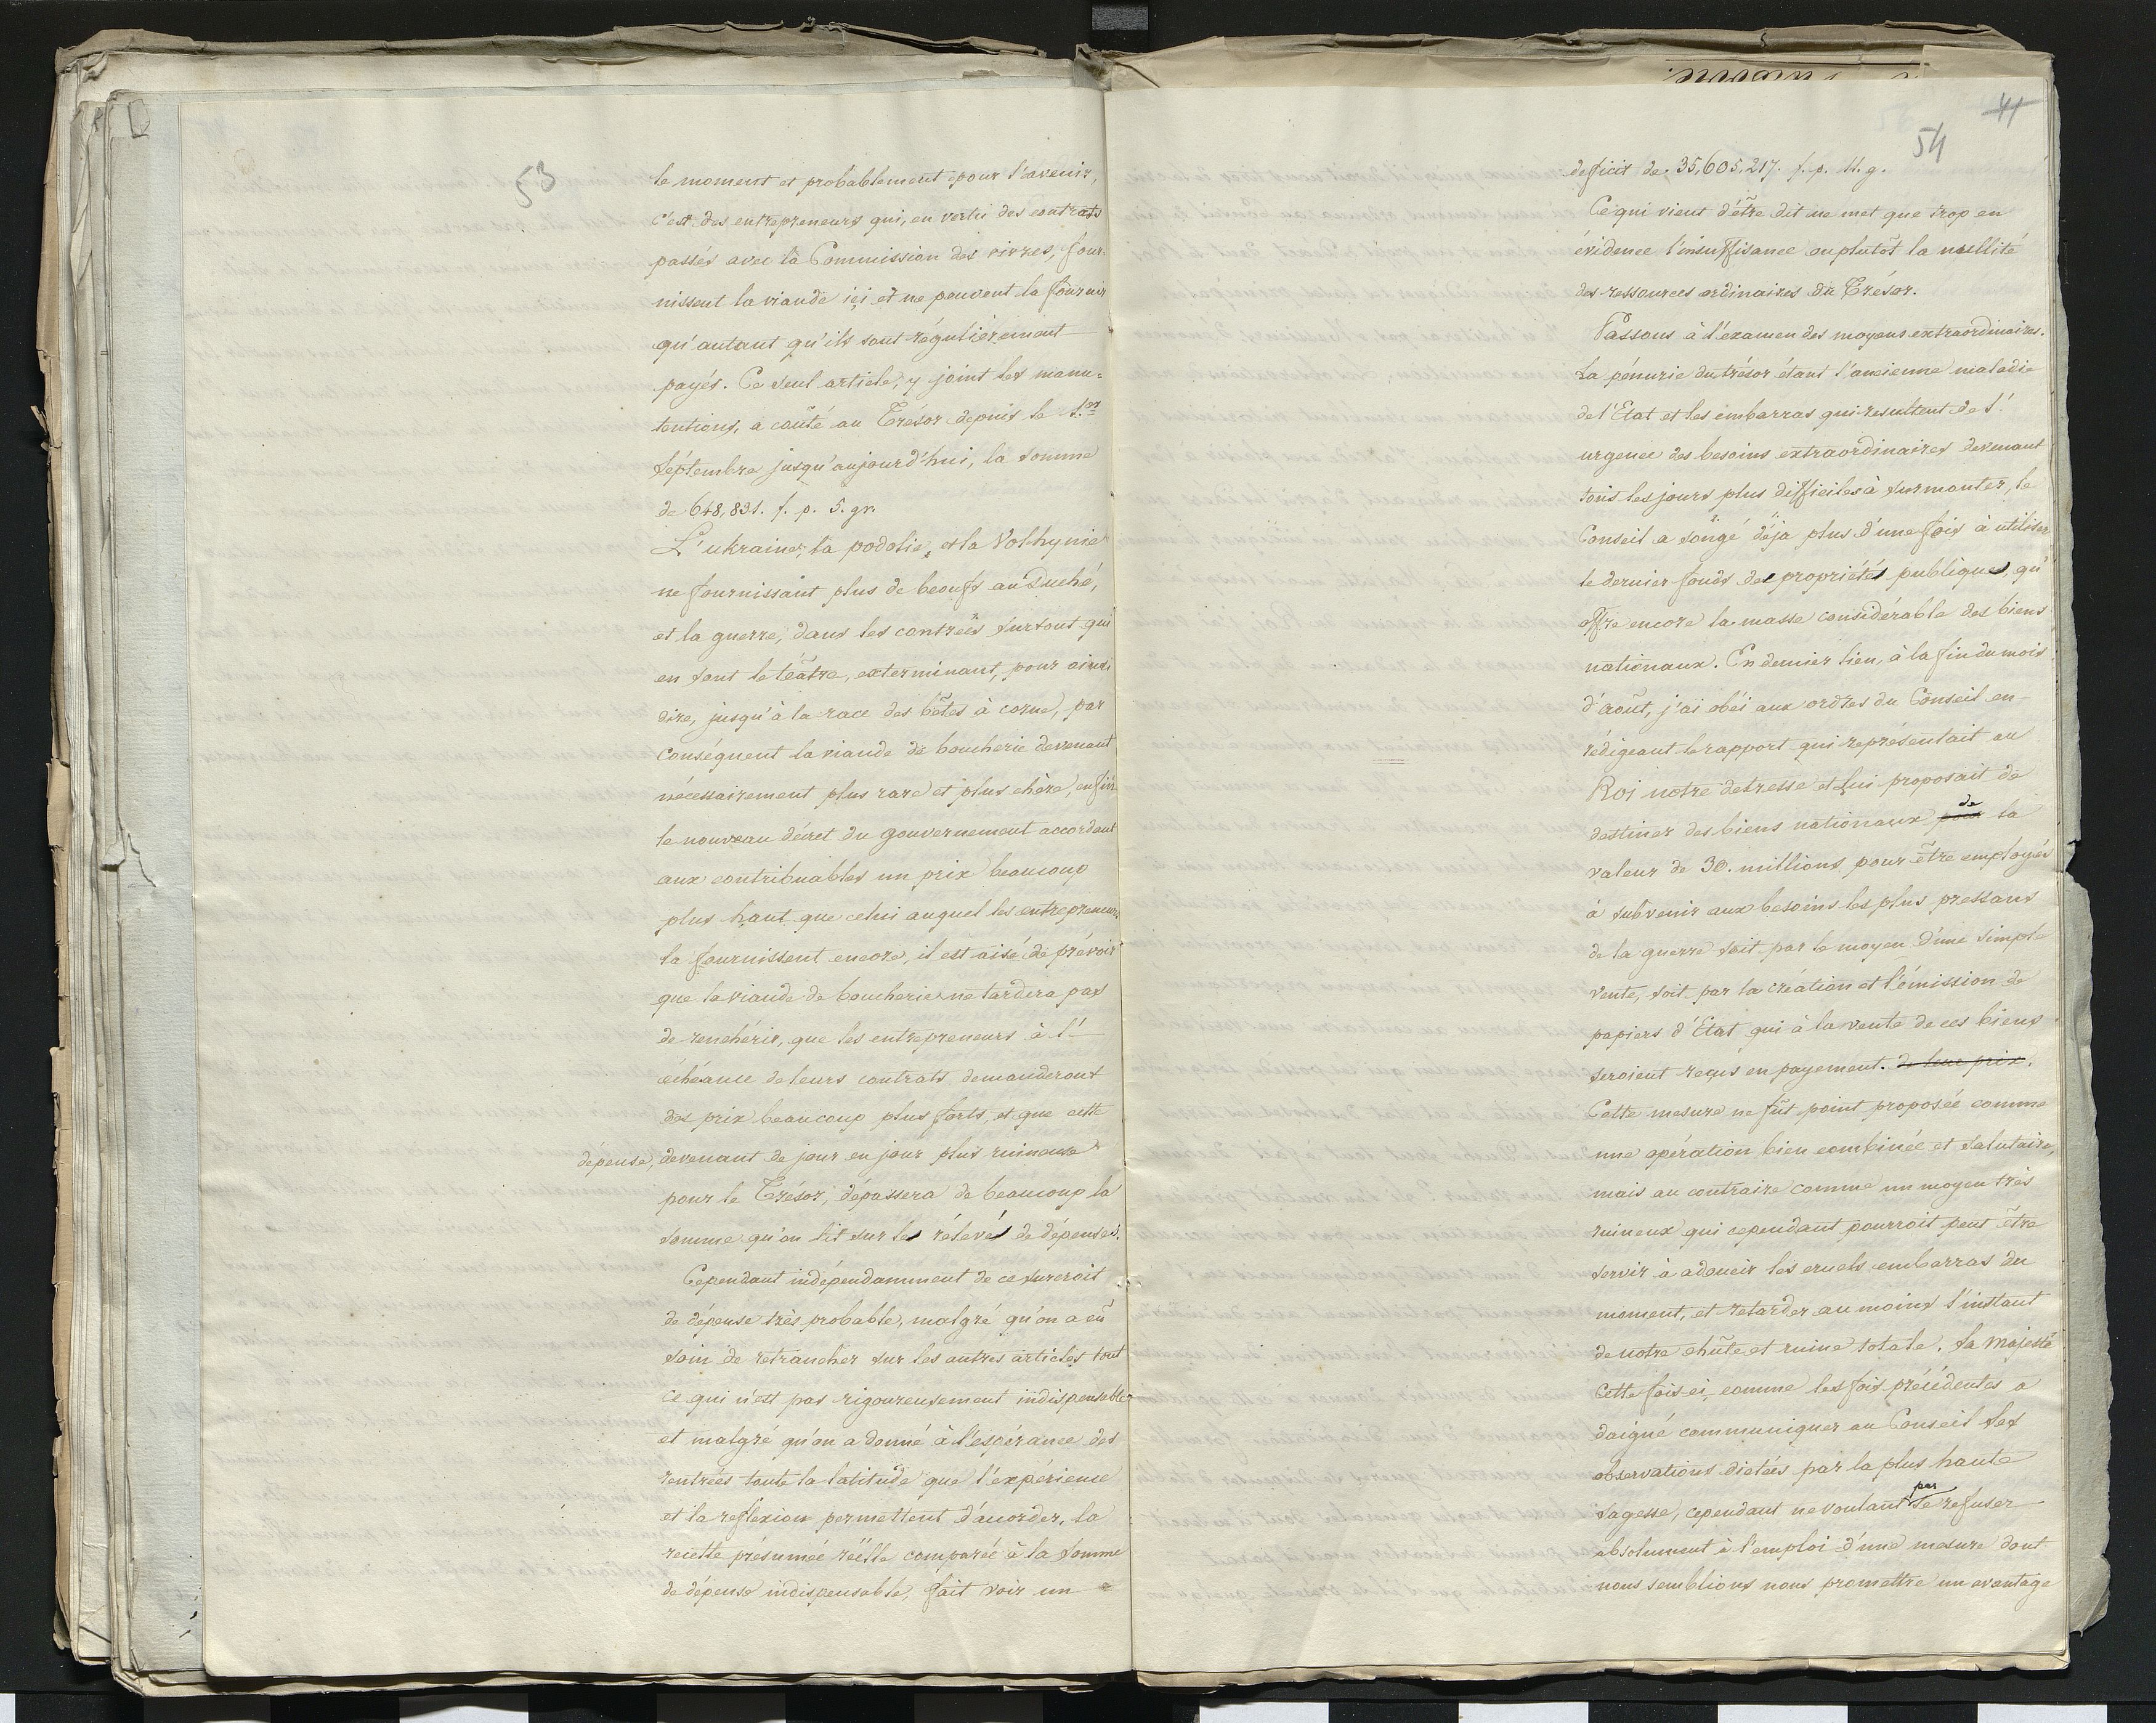 53
le moment et probablement pour l'avenir,
c'est des entrepreneurs qui, en vertu des contrats
passés avec la Commission des vivres, four-
nissent la viande ici et ne peuvent la fournir
qu'autant qu'ils sont régulièrement
payés. Ce seul article, y joint les manu-
tentions, a coûté au Trésor depuis le 1.er
Séptembre jusqu'aujourd'hui, la somme
de 648,831. f. p. 5. gr.
L'ukraine, la podolie, et la Volhynie
ne fournissant plus de beoufs au Duché,
et la guerre, dans les contreés surtout qui
en sont le téâtre, exterminant, pour ainsi
dire, jusqu'à la race des bêtes à corne, par
conséquent la viande de boucherie devenant
nécessairement plus rare et plus chère, enfin
le nouveau décret du gouvernement accordant
aux contribuables un prix beaucoup
plus haut que celui auquel les entrepreneurs
la fournissent encore, il est aisé de prévoir
que la viande de boucherie ne tardera pas
de renchérir, que les entrepreneurs à l'-
échéance de leurs contrats demanderont
des prix beaucoup plus forts, et que cette
dépense, devenant de jour en jour plus ruineuse
pour le Trésor, dépassera de beaucoup la
somme qu'on lit sur les rélevés de dépenses.
Cependant indépendamment de ce surcroit
de dépense très probable, malgré qu'on a eû
soin de retrancher sur les autres articles tout
ce qui n'est pas rigoureusement indispensable
et malgré qu'on a donné à l'espérance des
rentrées toute la latitude que l'expérience
et la reflexion permettent d'accorder, la
recette présumée réelle comparée à la somme
de dépense indispensable, fait voir un
41
54
defficit de 35,605,217. f. p. 11. g.
Ce qui vient d'être dit ne met que trop en
évidence l'insuffisance ou plutôt la nullité
des ressources ordinaires du Trésor.
Passons à l'examen des moyens extraordinaires.
La pénurie du trésor étant l'ancienne maladie
de l'Etat et les embarras qui resultent de l'
urgence des besoins extraordinaires devenant
tous les jours plus difficiles à surmonter, le
Conseil a songé déja plus d'une fois à utiliser
le dernier fonds des propriétés publiques, qu'
offre encore la masse considérable des biens
nationaux. En dernier lieu, à la fin du mois
d'août, j'ai obéi aux ordres du Conseil en
rédigeant le rapport qui représentait au
Roi notre detresse et lui proposait de
destiner des biens nationaux pour de la
valeur de 30. millions pour être employés
à subvenir aux besoins les plus pressans
de la guerre soit par le moyen d'une simple
vente, soit par la création et l'émission de
papiers d'Etat qui à la vente de ces biens
seroient reçus en payement. de leur prix.
Cette mesure ne fût point proposée comme
une opération bien combinée et salutaire,
mais au contraire comme un moyen très
ruineux qui cependant pourroit peut être
servir à adoucir les cruels embarras du
moment, et retarder au moins l'instant
de notre chûte et ruine totale. Sa Majesté
Cette fois-ci, comme les fois précédentes a
daigné communiquer au Conseil ses
observations dictées par la plus haute
sagesse, cependant ne voulant pas se refuser
absolument à l'emploi d'une mesure dont
nous semblions nous promettre un avantage